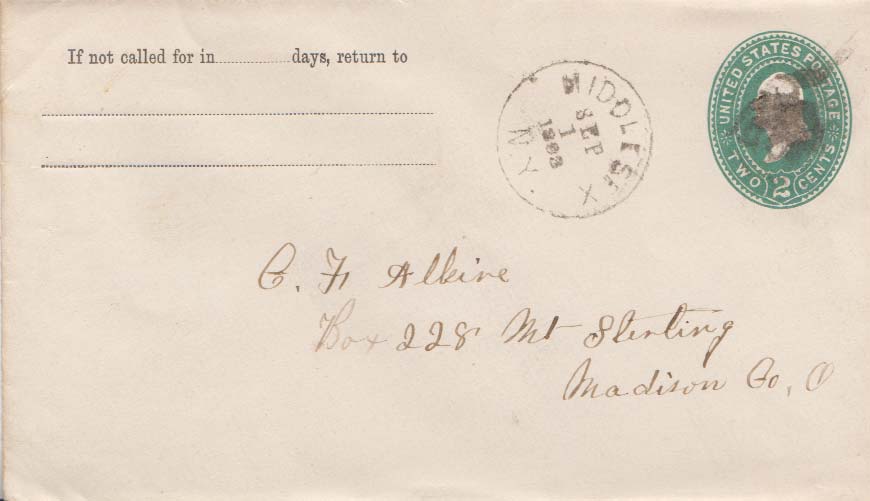 If not called for in ............ days, return to
MIDDLESEX
SEP
1
1893
N.Y.
UNITED STATES POSTAGE
TWO 2 CENTS
C. F. Alkire
Box 228 Mt Sterling
Madison Co, O